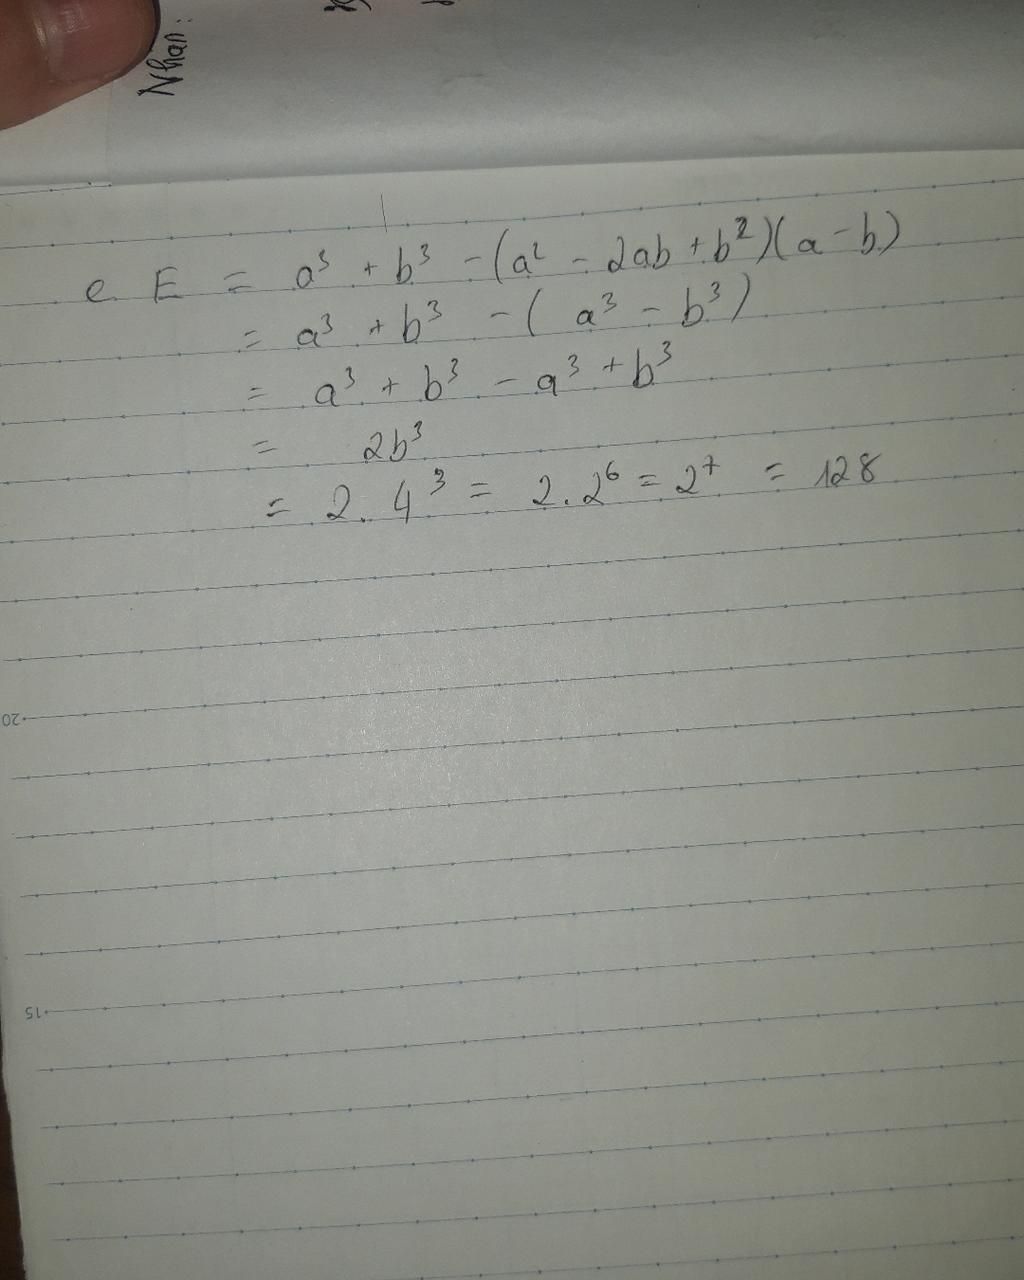 Nhan:
e. E = a³ + b³ - (a² - 2ab + b²)(a - b)
= a³ + b³ - ( a³ - b³ )
= a³ + b³ - a³ + b³
= 2b³
= 2 . 4³ = 2 . 2⁶ = 2⁷ = 128
20
15